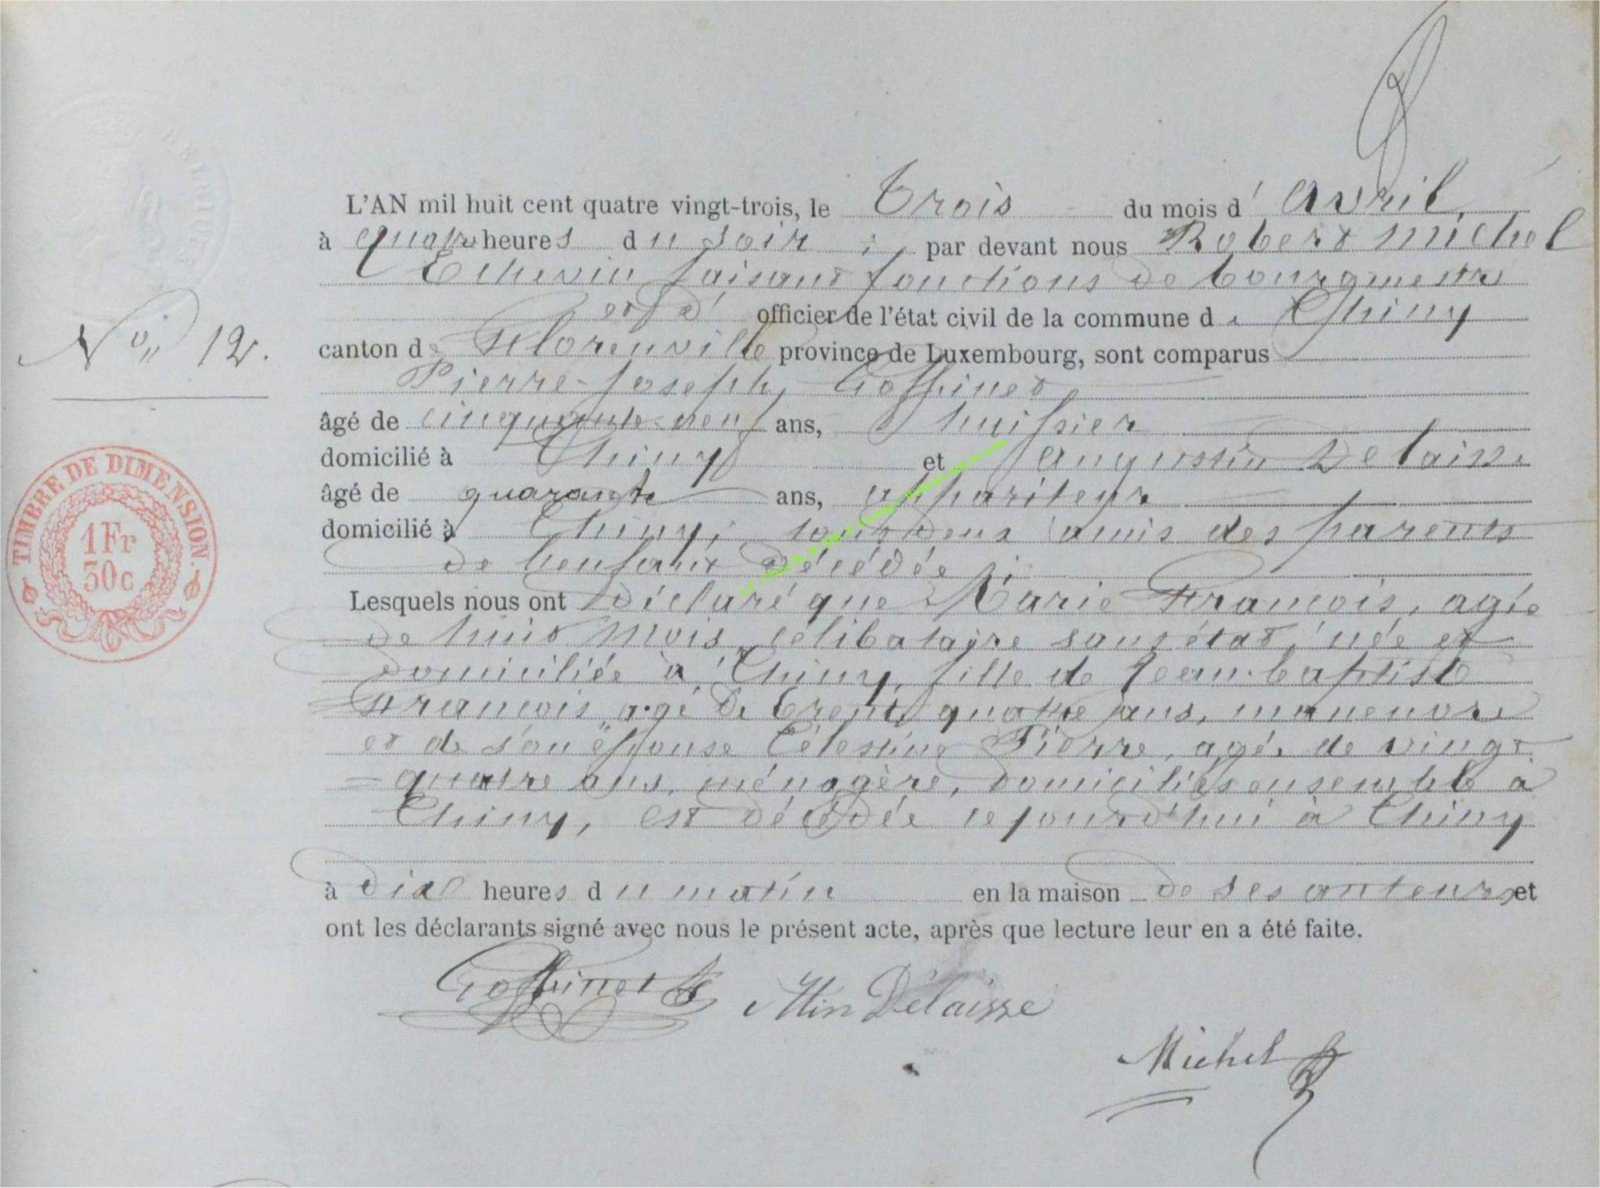 L'AN mil huit cent quatre vingt-trois, le trois du mois d' avril,
à quatre heures du soir ; par devant nous Robert Michel
Echevin faisant fonctions de bourgmestre
et d' officier de l'état civil de la commune de Chiny
No 12.
canton de Florenville province de Luxembourg, sont comparus
Pierre-Joseph Goffinet
âgé de cinquante-neuf ans, huissier
domicilié à Chiny et Augustin Delaisse
âgé de quarante ans, appariteur
domicilié à Chiny, tous deux amis des parents
de l'enfant décédée ;
TIMBRE DE DIMENSION.
1 Fr
30 c
Lesquels nous ont déclaré que Marie François, agée
de huit mois, célibataire sans état, née et
domiciliée à Chiny, fille de Jean-baptiste
François, agé de trente quatre ans, maneuvre
et de son épouse Célestine Pierre, agée de vingt
quatre ans, ménagère, domiciliés ensemble à
Chiny, est décédée cejourd'hui à Chiny
à dix heures du matin en la maison de ses auteurs et
ont les déclarants signé avec nous le présent acte, après que lecture leur en a été faite.
Goffinet Atin Delaisse
Michel